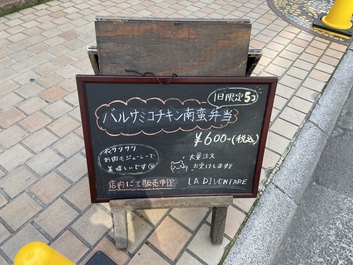 1日限定5コ
バルサミコチキン南蛮弁当
¥600-(税込)
衣サクサク
お肉モジューシーで
美味しいです
大量注文
お受けします
店内にて販売中
LA DIVENTARE